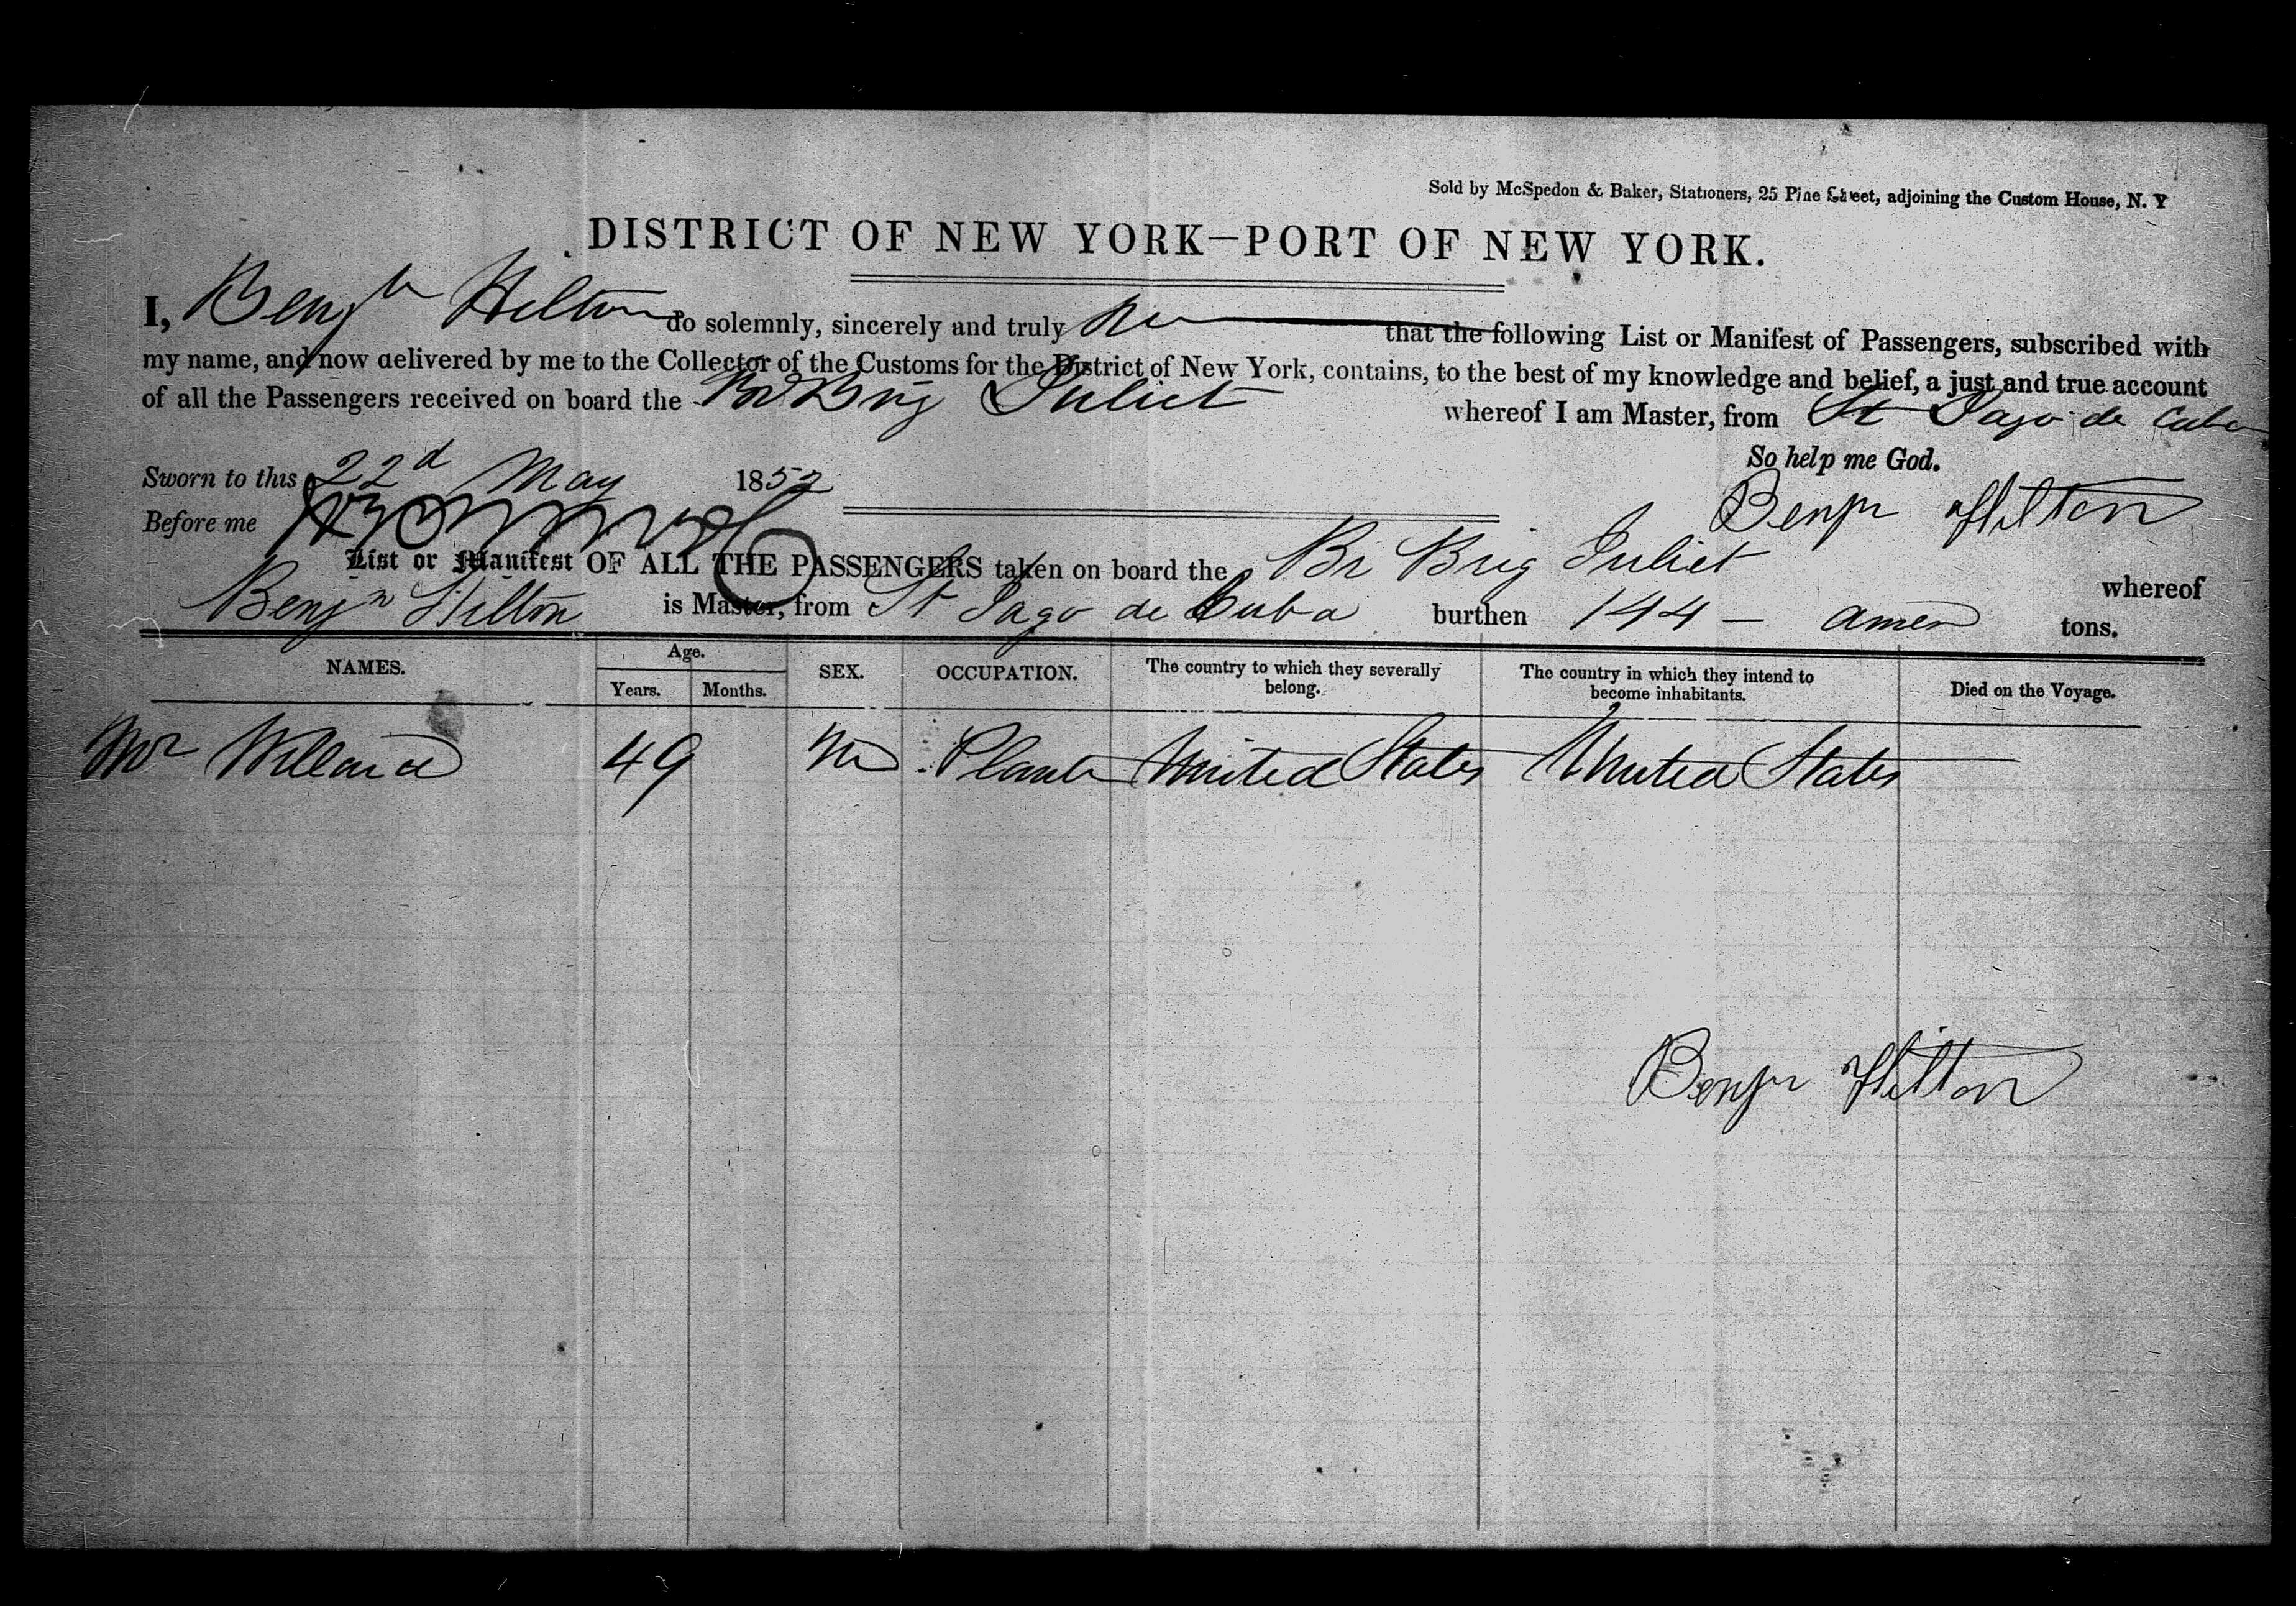 Sold by McSpedon & Baker, Stationers, 25 Pine Street, adjoining the Custom House, N. Y
DISTRICT OF NEW YORK—PORT OF NEW YORK.
I, Benjn Hilton do solemnly, sincerely and truly that the following List or Manifest of Passengers, subscribed with
my name, and now delivered by me to the Collector of the Customs for the District of New York, contains, to the best of my knowledge and belief, a just and true account
of all the Passengers received on board the Br Brig Juliet whereof I am Master, from St Jago de Cuba
So help me God.
Sworn to this 22d May 1852
Benjn Hilton
Before me
List or Manifest OF ALL THE PASSENGERS taken on board the Br Brig Juliet whereof
Benjn Hilton is Master, from St Jago de Cuba burthen 144 — tons.
NAMES. Age. Years. Months. SEX. OCCUPATION. The country to which they severally belong. The country in which they intend to become inhabitants. Died on the Voyage.
Mr Willard 49 M Planter United States United States
Benjn Hilton